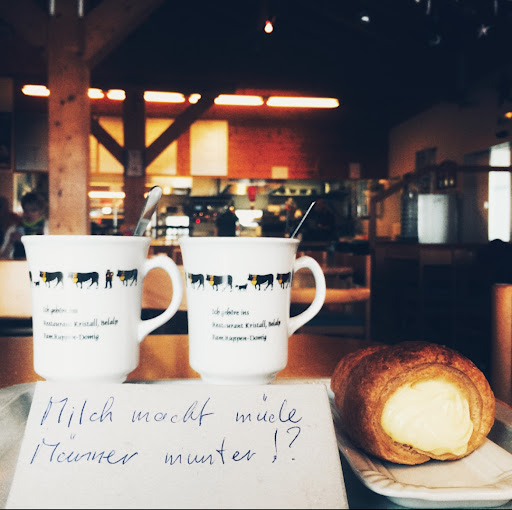 Ich gehöre ins
Restaurant Kristall, Belalp
Fam.Kuppen-Domig
Ich gehöre ins
Restaurant Kristall, Belalp
Fam.Kuppen-Domig
Milch macht müde
Männer munter!?